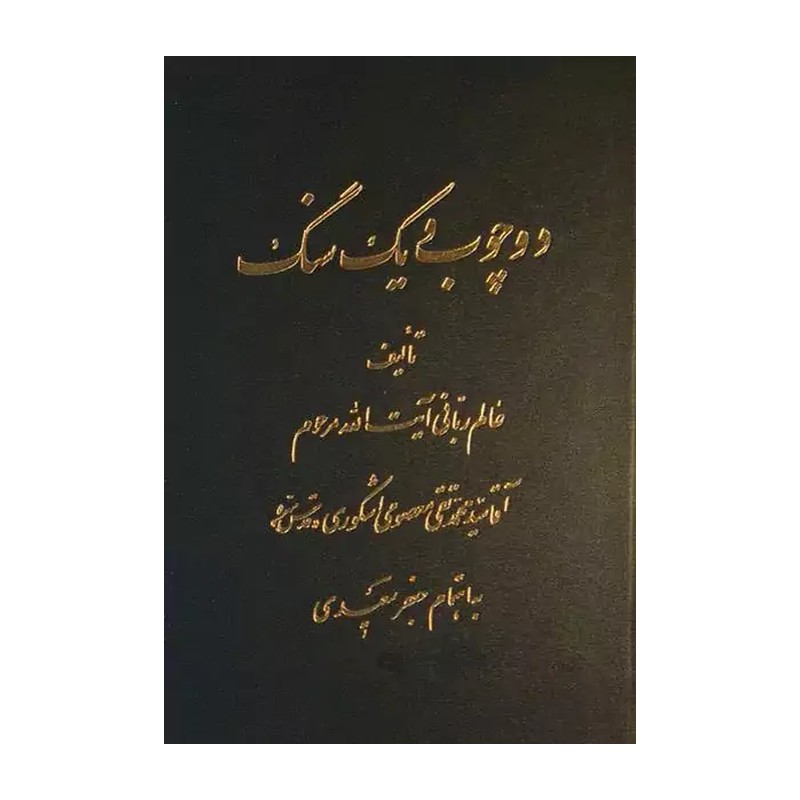 دو چوب و یک سنگ
تألیف
عالم ربانی آیت الله مرحوم
آقا سید محمد تقی معصومی اشکوری قدس سره
باهتمام جعفر پگدی